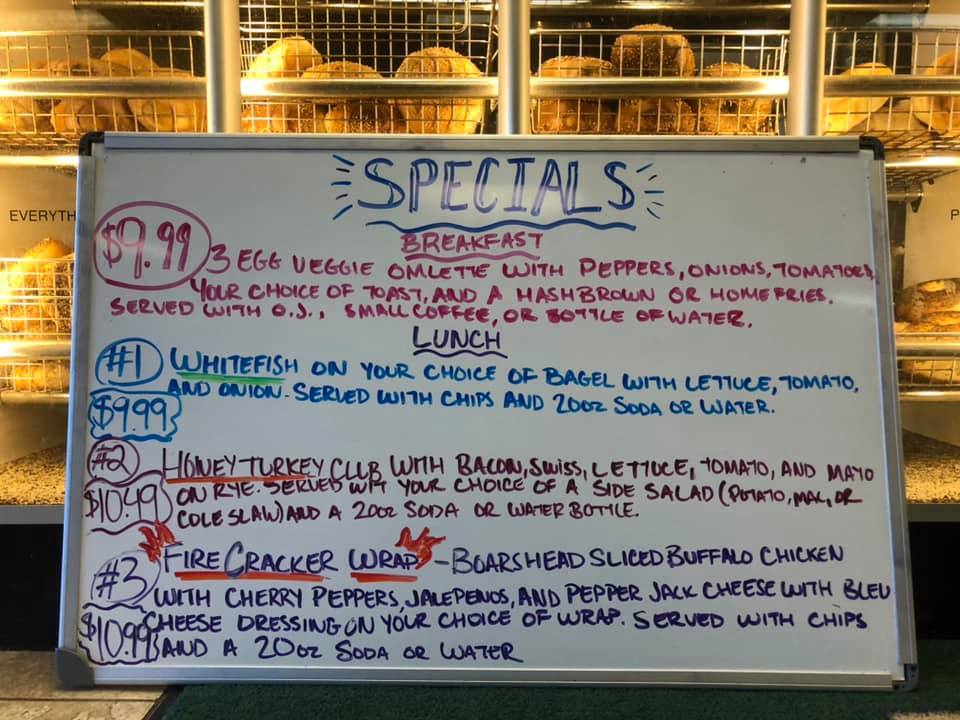 SPECIALS
EVERYTH
P
BREAKFAST
$9.99
3 EGG VEGGIE OMLETTE WITH PEPPERS, ONIONS, TOMATOES,
YOUR CHOICE OF TOAST, AND A HASHBROWN OR HOMEFRIES.
SERVED WITH O.J., SMALL COFFEE, OR BOTTLE OF WATER.
LUNCH
#1 WHITEFISH ON YOUR CHOICE OF BAGEL WITH LETTUCE, TOMATO,
$9.99 AND ONION. SERVED WITH CHIPS AND 20oz SODA OR WATER.
#2 HONEY TURKEY CLUB WITH BACON, SWISS, LETTUCE, TOMATO, AND MAYO
$10.49 ON RYE. SERVED WIT YOUR CHOICE OF A SIDE SALAD (POTATO, MAC, OR
COLESLAW) AND A 20oz SODA OR WATER BOTTLE.
#3 FIRE CRACKER WRAP - BOARSHEAD SLICED BUFFALO CHICKEN
WITH CHERRY PEPPERS, JALEPENOS, AND PEPPER JACK CHEESE WITH BLEU
$10.99 CHEESE DRESSING ON YOUR CHOICE OF WRAP. SERVED WITH CHIPS
AND A 20oz SODA OR WATER